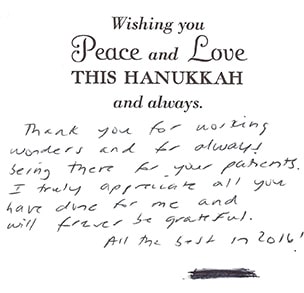 Wishing you
Peace and Love
THIS HANUKKAH
and always.
Thank you for working
wonders and for always
being there for your patients.
I truly appreciate all you
have done for me and
will forever be grateful.
All the best in 2016!